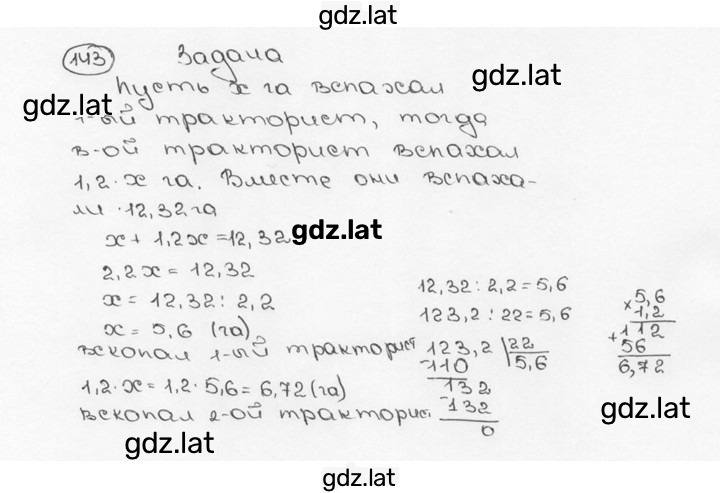 gdz.lat
143 Задача
Пусть x га вспахал
gdz.lat
gdz.lat
1-ый тракторист, тогда
в-ой тракторист вспахал
1,2·x га. Вместе они вспаха-
ли ·12,32га
x + 1,2x = 12,32
gdz.lat
2,2x = 12,32
x = 12,32 : 2,2
x = 5,6 (га)
вскопал 1-ый тракторист
1,2·x = 1,2·5,6 = 6,72 (га)
вскопал 2-ой тракторис
12,32 : 2,2 = 5,6
123,2 : 22 = 5,6
123,2 | 22
-110 | 5,6
132
-132
0
5,6
× 1,2
112
+ 56
6,72
gdz.lat
gdz.lat
gdz.lat